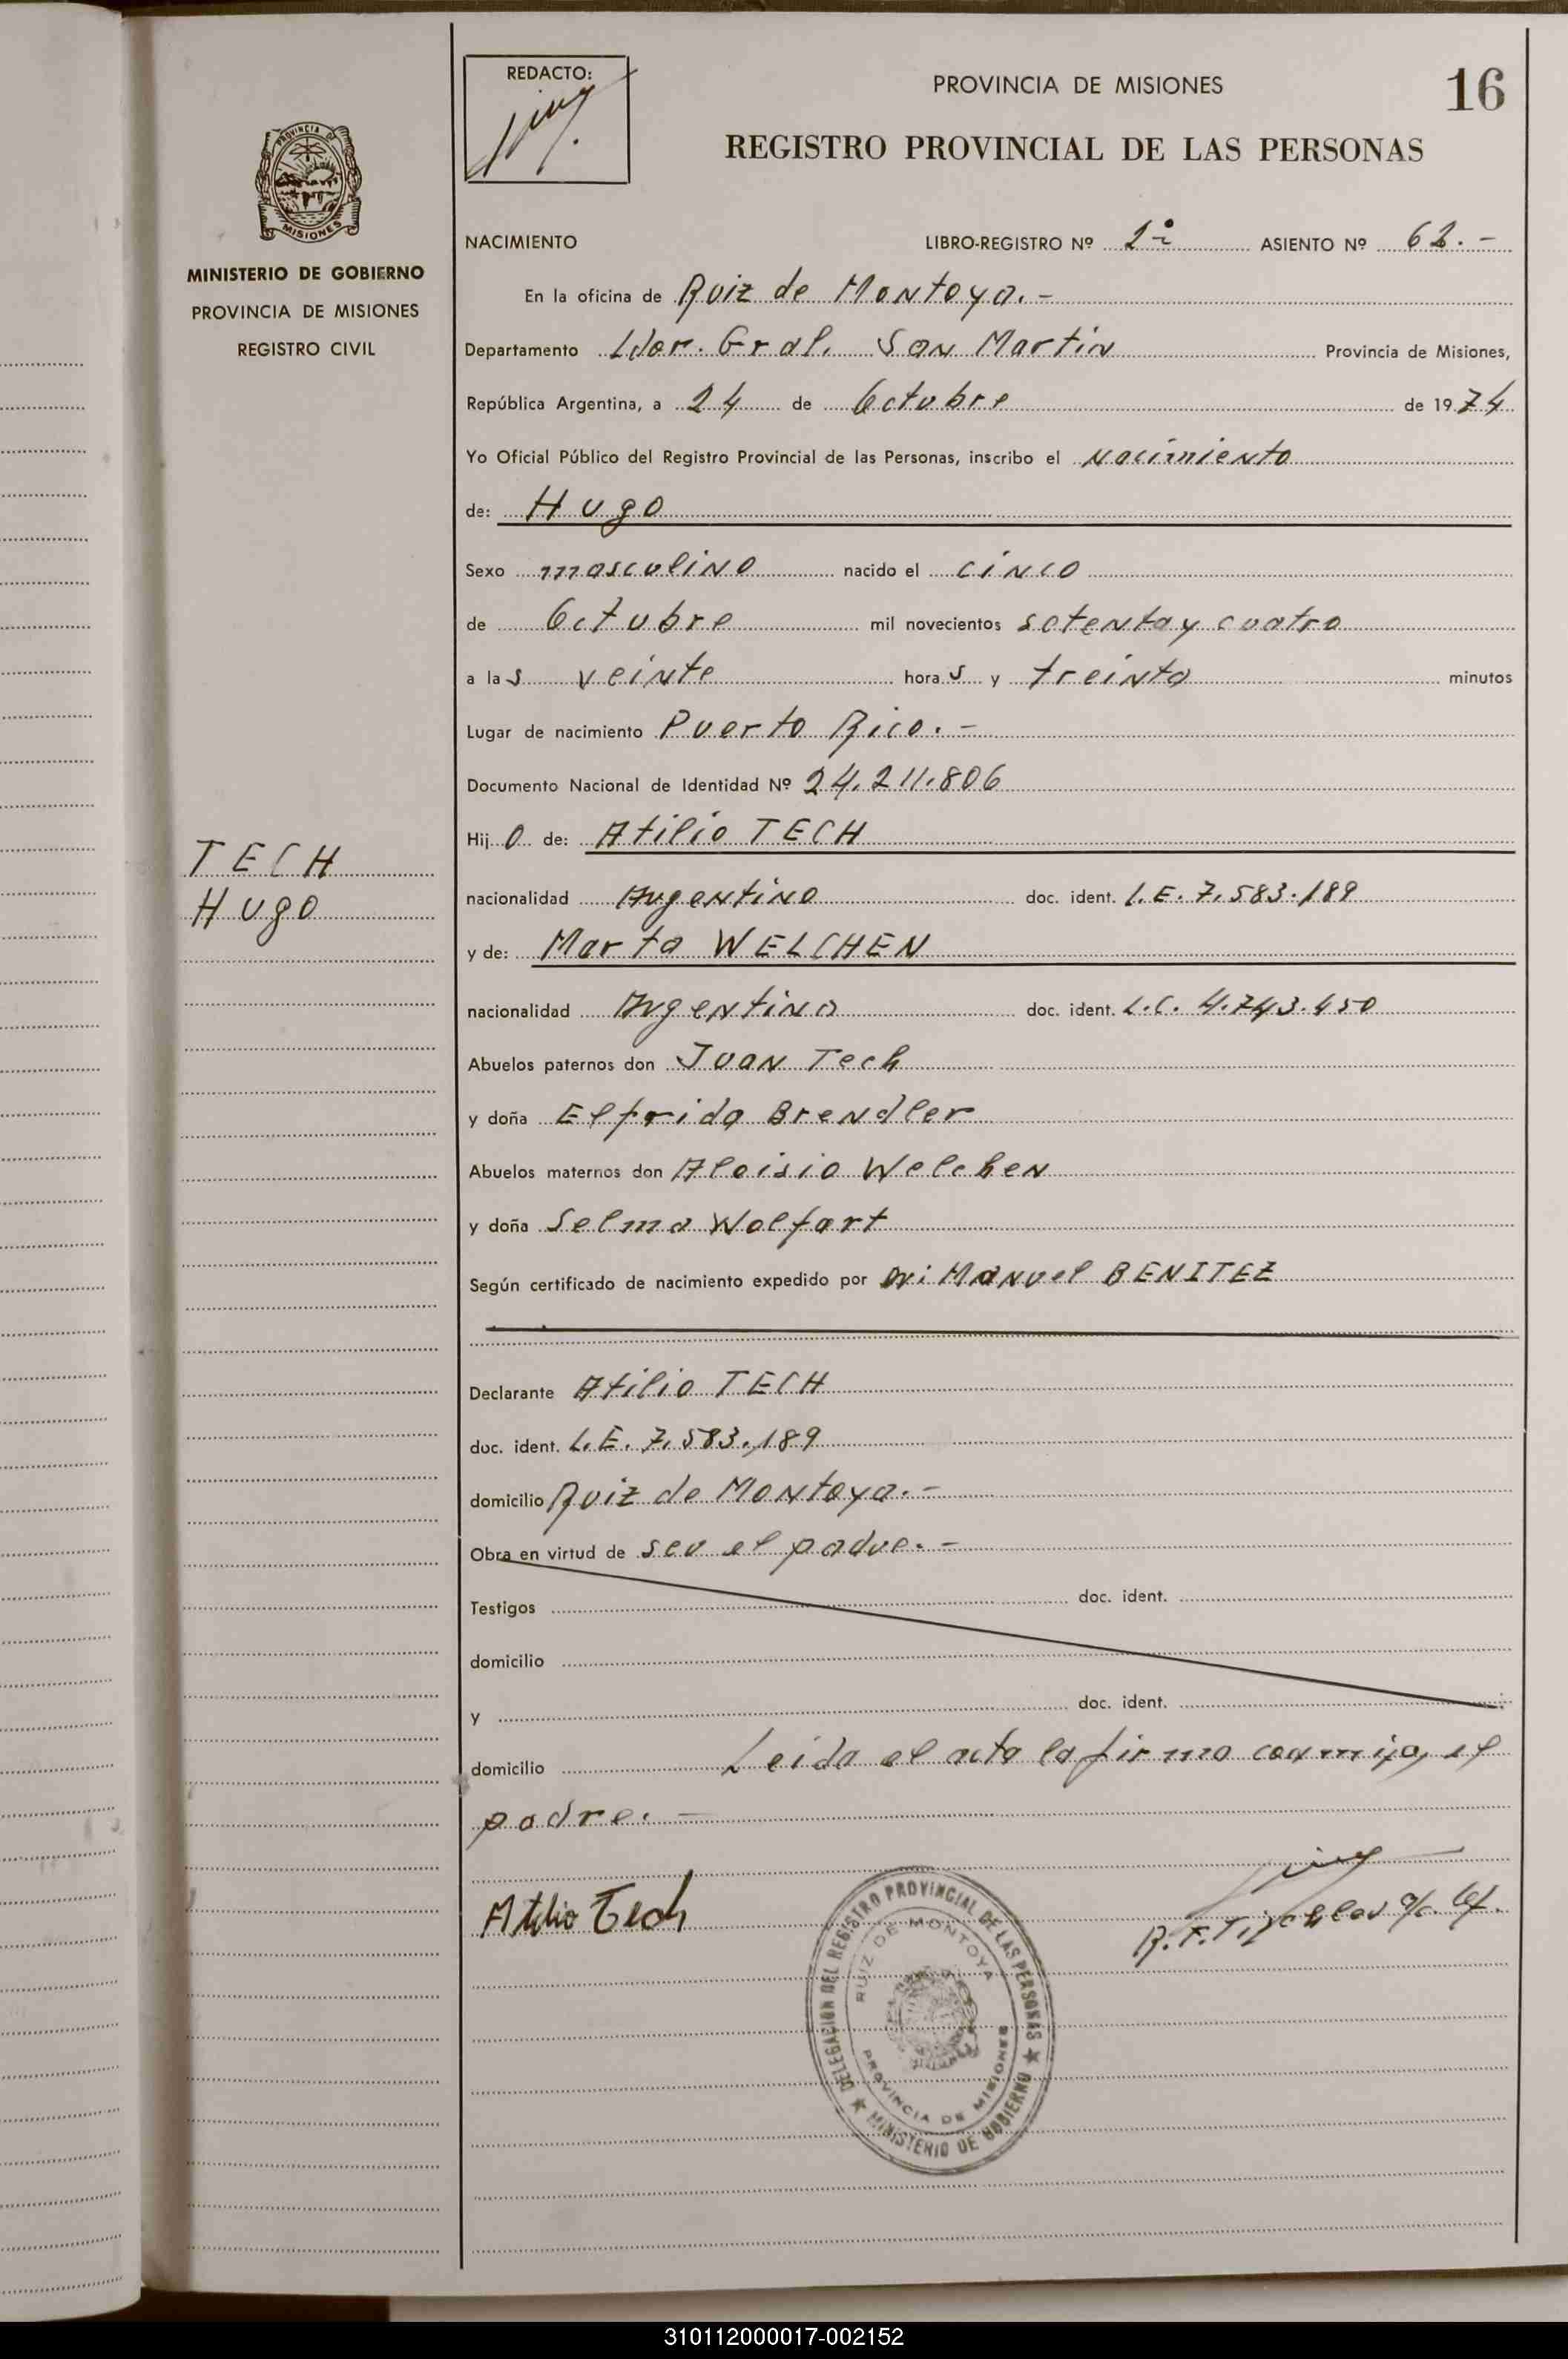 REDACTO:
PROVINCIA DE MISIONES
16
REGISTRO PROVINCIAL DE LAS PERSONAS
PROVINCIA DE
MISIONES
MINISTERIO DE GOBIERNO
PROVINCIA DE MISIONES
REGISTRO CIVIL
TECH
Hugo
NACIMIENTO LIBRO-REGISTRO Nº ASIENTO Nº 62.-
En la oficina de Ruiz de Montoya.-
Departamento Ldor. Gral. San Martin Provincia de Misiones,
República Argentina, a 24 de Octubre de 1974
Yo Oficial Público del Registro Provincial de las Personas, inscribo el nacimiento
de: Hugo
Sexo masculino nacido el cinco
de Octubre mil novecientos setenta y cuatro
a las veinte horas y treinta minutos
Lugar de nacimiento Puerto Rico.-
Documento Nacional de Identidad Nº 24.211.806
Hijo de: Atilio TECH
nacionalidad Argentino doc. ident. L.E. 7.583.189
y de: Marta WELCHEN
nacionalidad Argentina doc. ident. L.C. 4.743.450
Abuelos paternos don Juan Tech
y doña Elfrida Brendler
Abuelos maternos don Aloisio Welchen
y doña Selma Wolfart
Según certificado de nacimiento expedido por Manuel BENITEZ
Declarante Atilio TECH
doc. ident. L.E. 7.583.189
domicilio Ruiz de Montoya.-
Obra en virtud de ser el padre.-
Testigos doc. ident.
domicilio
y doc. ident.
domicilio Leida el acta la firma conmigo, el
padre.-
Atilio Tech
R.F.
DELEGACION DEL REGISTRO PROVINCIAL DE LAS PERSONAS ★ MINISTERIO DE GOBIERNO ★
RUIZ DE MONTOYA
PROVINCIA DE MISIONES
310112000017-002152